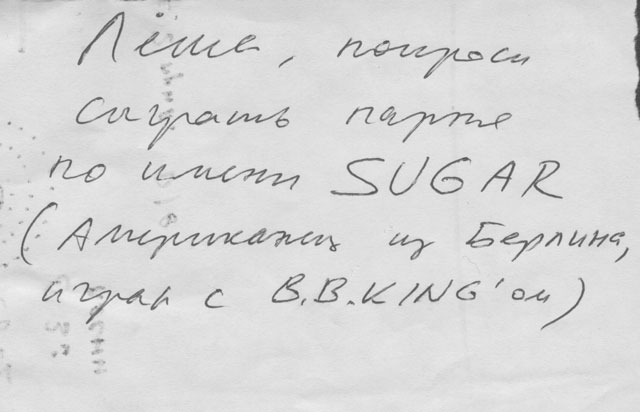 Лёша, попроси
сыграть парня
по имени SUGAR
(Американец из Берлина,
играл с B.B.KING'ом)